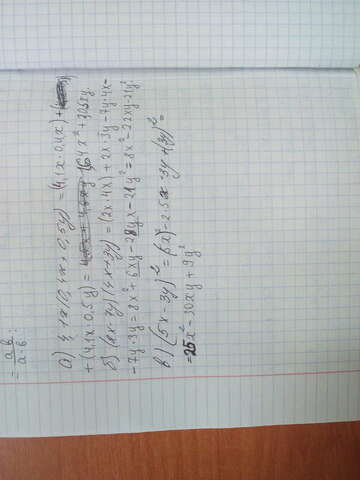 = ab/a·b :
а) 4,1x(0,4x + 0,5y) = (4,1x·0,4x) +
+ (4,1x·0,5y) = 1,64x² + 2,05xy.
б) (2x-7y)(4x+3y) = (2x·4x) + 2x·3y - 7y·4x -
- 7y·3y = 8x² + 6xy - 28yx - 21y² = 8x² - 22xy - 21y².
в) (5x - 3y)² = (5x)² - 2·5x·3y + (3y)² =
= 25x² - 30xy + 9y²